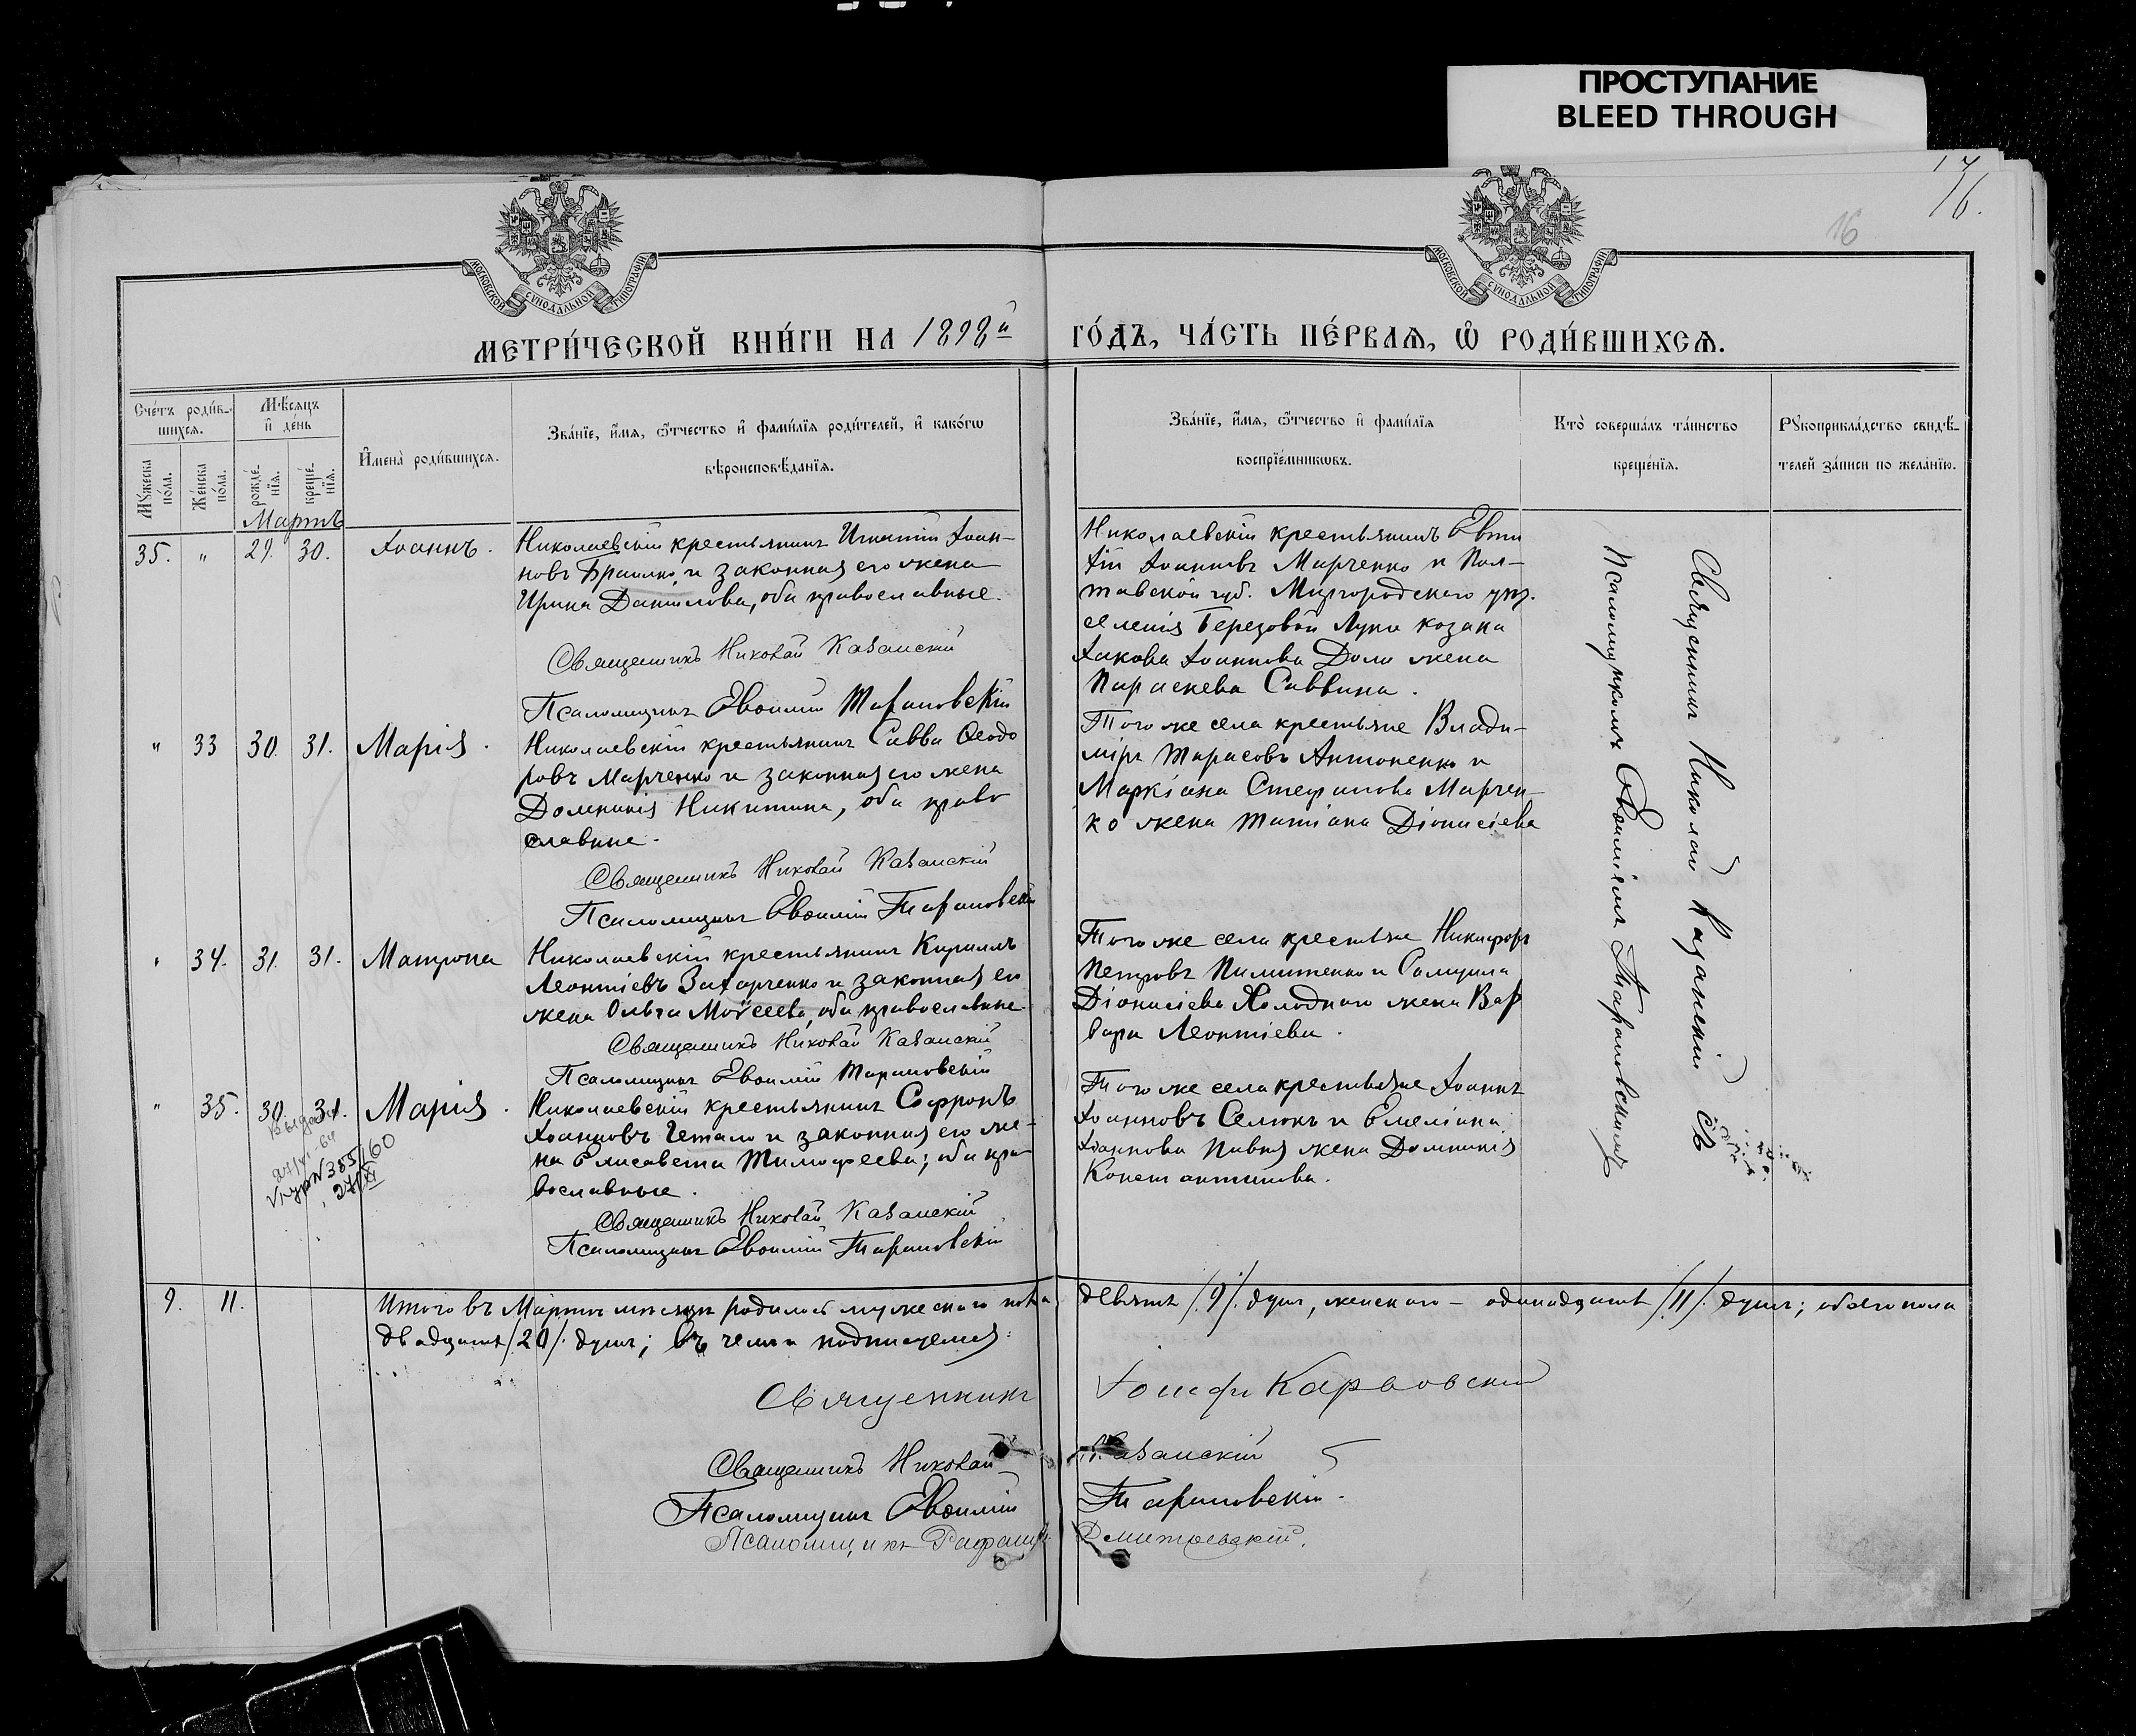 ПРОСТУПАНИЕ
BLEED THROUGH
17
16.
16
МОСКОВСКОЙ СѴНОДАЛЬНОЙ ТИПОГРАФІИ
МОСКОВСКОЙ СѴНОДАЛЬНОЙ ТИПОГРАФІИ
МЕТРИ́ЧЕСКОЙ КНИ́ГИ НА 1898й ГО́ДЪ, ЧА́СТЬ ПЕ́РВАѦ, Ѽ РОДИ́ВШИХСѦ.
Сче́тъ роди́в-
шихся.
Мѣ́сяцъ
и҆ де́нь
Мꙋ́жеска
по́ла.
Же́нска
по́ла.
рожде́-
нїя.
креще́-
нїя.
И҆мена̀ роди́вшихся.
Зва́нїе, и҆́мя, ѻ҆́тчество и҆ фами́лїя роди́телей, и҆ како́гѡ
вѣроисповѣ́данїя.
Зва́нїе, и҆́мя, ѻ҆́тчество и҆ фами́лїя
воспрїе́мникѡвъ.
Кто̀ соверша́лъ та́инство
креще́нїя.
Рꙋкоприкла́дство свидѣ́-
телей за́писи по жела́нїю.
Мартъ
35. " 29. 30. Іоаннъ.
Николаевскій крестьянинъ Игнатій Іоан-
новъ Брашко, и законная его жена
Ирина Данилова, оба православные.
Священникъ Николай Казанскій
Псаломщикъ Евѳимій Тарановскій
Николаевскій крестьянинъ Евти
хій Іоанновъ Марченко и Пол-
тавской губ. Миргородскаго уѣз.
селенія Березовой Луки козака
Іакова Іоаннова Дола жена
Параскева Саввина.
" 33 30. 31. Марія.
Николаевскій крестьянинъ Савва Ѳеодо
ровъ Марченко и законная его жена
Домникія Никитина, оба право
славные.
Священникъ Николай Казанскій
Псаломщикъ Евѳимій Тарановскій
Того же села крестьяне Влади-
міръ Тарасовъ Антоненко и
Маркіана Стефанова Марчен-
ко жена Татіана Діонисіева
" 34. 31. 31. Матрона
Николаевскій крестьянинъ Кириллъ
Леонтіевъ Захарченко и законная его
жена Ольга Моѵсеева, оба православные
Священникъ Николай Казанскій
Псаломщикъ Евѳимій Тарановскій
Того же села крестьяне Никифоръ
Петровъ Пилипенко и Самуила
Діонисіева Холоднаго жена Вар
вара Леонтіева.
" 35. 30. 31. Марія.
Николаевскій крестьянинъ Софронъ
Іоанновъ Гетало и законная его же-
на Елисавета Тимофеева; оба пра
вославные.
Священникъ Николай Казанскій
Псаломщикъ Евѳимій Тарановскій
Того же села крестьяне Іоаннъ
Іоанновъ Селюкъ и Емеліана
Іоаннова Павия жена Домникія
Константинова.
Священникъ Николай Казанскій съ
Псаломщикомъ Евѳиміемъ Тарановскимъ
9. 11.
Итого въ Мартѣ мѣсяцѣ родилось мужескаго пола девять /.9/. душъ, женскаго - одинадцать /.11/. душъ; обоего пола
двадцать /.20/. душъ; въ чемъ и подписуемся:
Священникъ Іосифъ Карповскій
Священникъ Николай Казанскій
Псаломщикъ Евѳимій Тарановскій.
Псаломщикъ Дмитревскій.